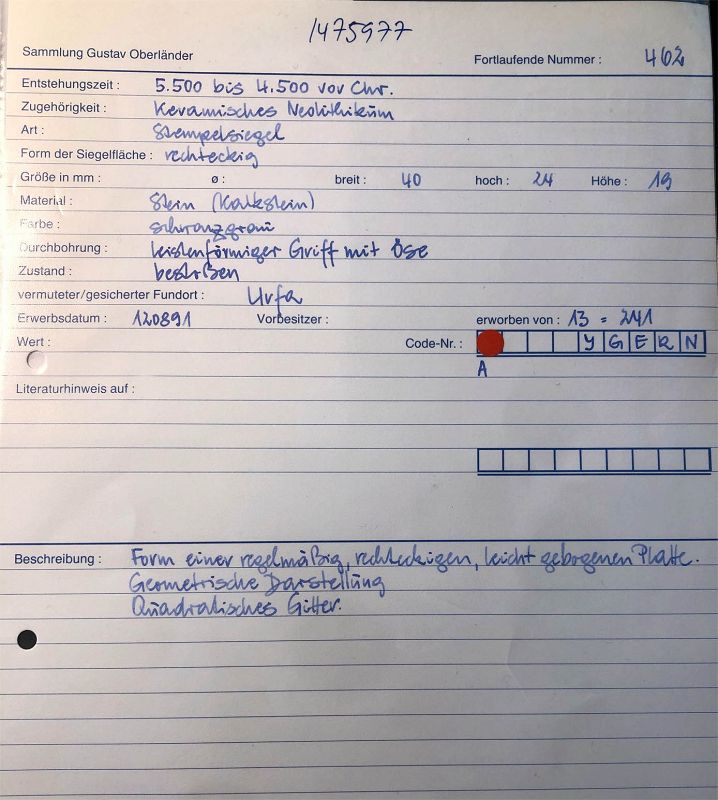 1475977
Sammlung Gustav Oberländer Fortlaufende Nummer : 462
Entstehungszeit : 5.500 bis 4.500 vor Chr.
Zugehörigkeit : Keramisches Neolithikum
Art : Stempelsiegel
Form der Siegelfläche : rechteckig
Größe in mm : ø : breit : 40 hoch : 24 Höhe : 19
Material : Stein (Kalkstein)
Farbe : schwarzgrau
Durchbohrung : leistenförmiger Griff mit Öse
Zustand : bestoßen
vermuteter/gesicherter Fundort : Urfa
Erwerbsdatum : 120891 Vorbesitzer : erworben von : 13 = 241
Wert : Code-Nr. : Y G E R N
A
Literaturhinweis auf :
Beschreibung : Form einer regelmäßig, rechteckigen, leicht gebogenen Platte.
Geometrische Darstellung
Quadratisches Gitter.